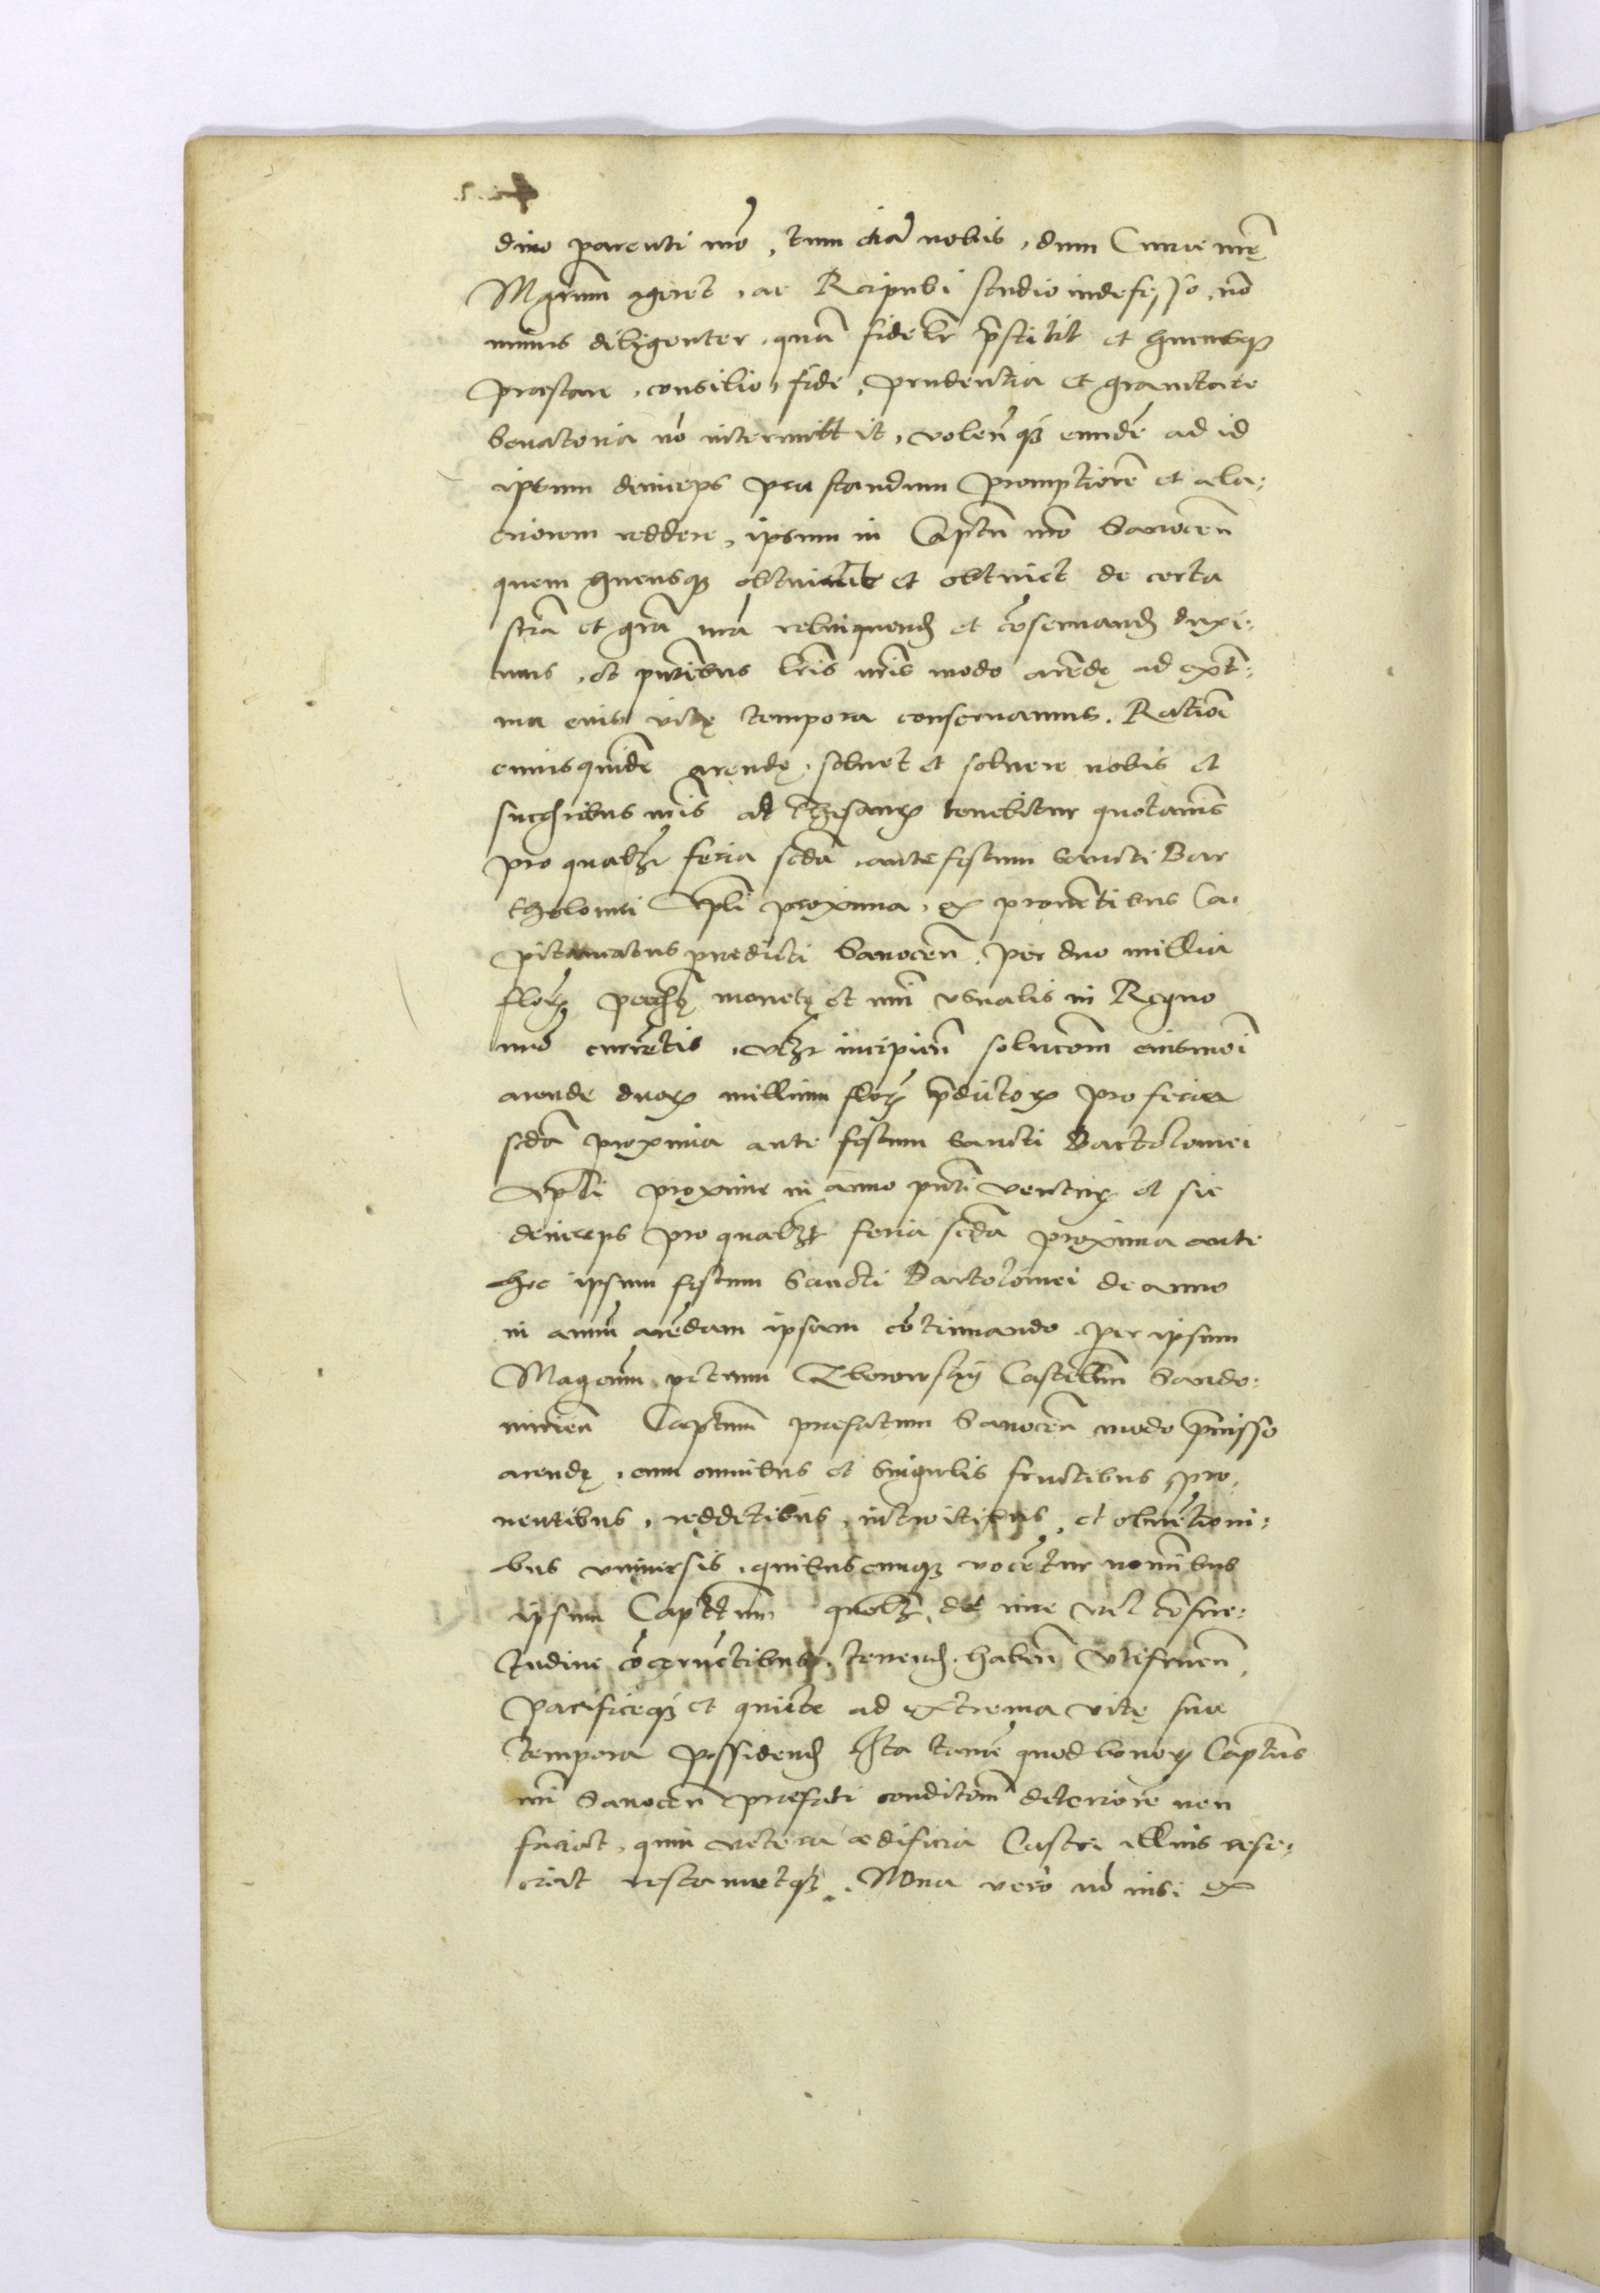 divo parenti nrō, tum etiā nobis, dum Curiae nrę
Mgrum ageret, ac Reipubl studio indefesso, nō
minus diligenter, quā fidelr p̄stitit et hucusq3
praestare, consilio, fide, prudentia et gravitate
Senatoria nō intermittit, volen̄ q3 eundē ad id
ipsum deinceps praestandum promptiorē et ala-
criorem reddere, ipsum in Captu nrō Sanocen̄
quem hucusq3 obtinuit et obtinet de certa
scia et grā nrā relinquend et cōservand duxi-
mus, et pntibus lris nris modo arēdę ad extre-
ma eius vitę tempora conservamus. Ratione
cuiusquidē arendę, solvet et solvere nobis et
succribus nris ad thesaur tenebitur quotannis
pro qualibet feria scda ante festum Sancti Bar
tholomei Apli proxima, ex proventibus Ca-
pitaneatus predicti Sanocen̄, per duo millia
flor pecunię monetę et nri usualis in Regno
nrō currētis, videlicet incipien̄ solucōm eiusmōi
arende duor millium flor p̄dictor pro feria
scda proxima ante festum Sancti Bartolomei
Apli proxime in anno pnti ventur et sic
deinceps pro qualibet feria scda proxima ante
hoc ipsum festum Sancti Bartolomei de anno
in annū arēdam ipsam cōtinuando, per ipsum
Magcum petrum Zborowskij Castellm Sando-
mirien̄ Captum prefatum Sanocen̄ modo p̄misso
arendę, cum omnibus et singulis fructibus, pro-
ventibus, redditibus, introitibus, et obventioni-
bus universis, quibuscunq3 vocētur nominibus
ipsum Capttum quolibet de iure vel cōsue-
tudine cōcernētibus, tenend, haben̄ utifruen̄,
Pacificeq3 et quiete ad extrema vitę sue
tempora possidend Ita tamē quod bonor Captus
nri Sanocen̄ prefati conditiōm deteriorē non
faciet, quin vetera aedificia Castri illius refi-
ciet restauretq3. Nova vero nō nisi ex